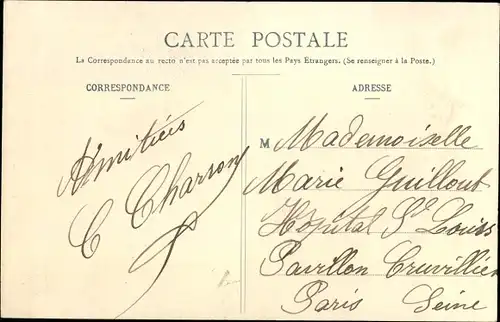 CARTE POSTALE
La Correspondance au recto n'est pas acceptée par tous les Pays Etrangers. (Se renseigner à la Poste.)
CORRESPONDANCE
Amitiés
C Charron
ADRESSE
M Mademoiselle
Marie Guillout
Hôpital St Louis
Pavillon Cruvillier
Paris Seine